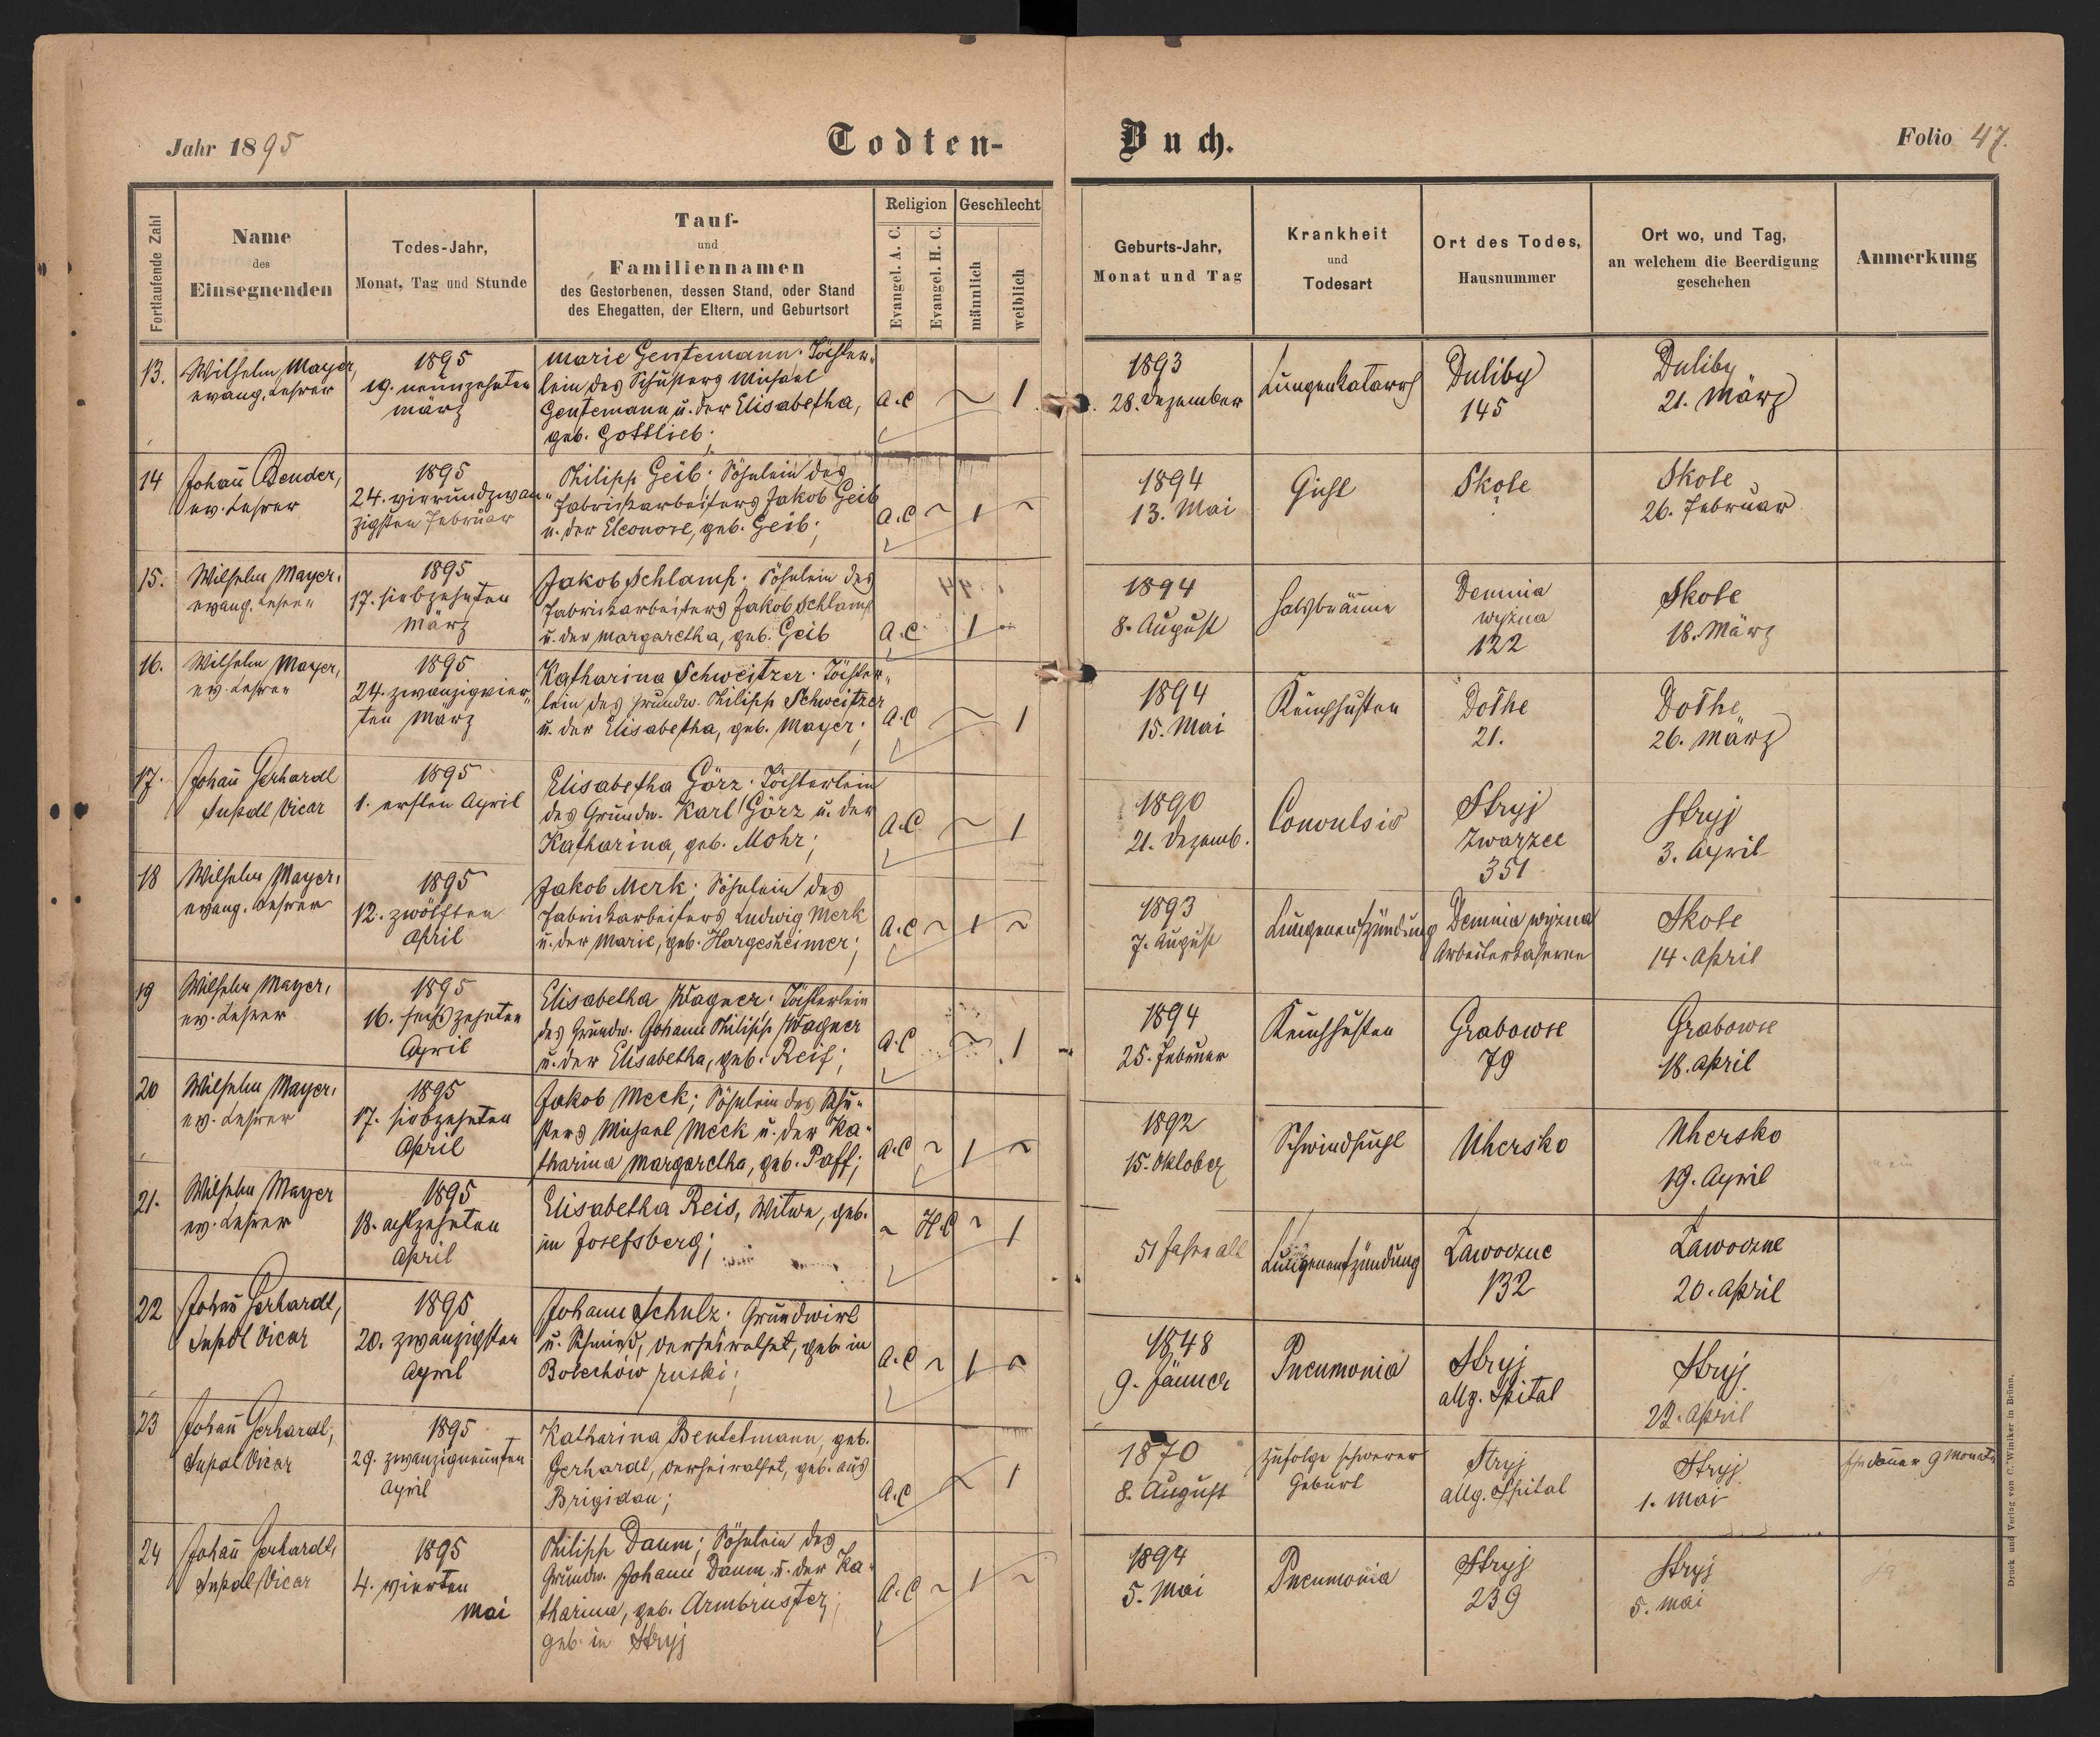 Jahr 1895
Todten-
Buch.
Folio 47.
Fortlaufende Zahl
Name
des
Einsegnenden
Todes-Jahr,
Monat, Tag und Stunde
Tauf-
und
Familiennamen
des Gestorbenen, dessen Stand, oder Stand
des Ehegatten, der Eltern, und Geburtsort
Religion
Evangel. A. C.
Evangel. H. C.
Geschlecht
männlich
weiblich
Geburts-Jahr,
Monat und Tag
Krankheit
und
Todesart
Ort des Todes,
Hausnummer
Ort wo, und Tag,
an welchem die Beerdigung
geschehen
Anmerkung
13.
Wilhelm Mayer,
evang. Lehrer
1895
19. neunzehnten
März
Marie Gentemann; Töchter-
lein des Schusters Michael
Gentemann u. der Elisabetha,
geb. Gottlieb;
A.C ~ 1
1893
28. Dezember
Lungenkatarrh
Duliby
145
Duliby
21. März
14
Johañ Bender,
ev. Lehrer
1895
24. vierundzwan-
zigsten Februar
Philipp Geib; Söhnlein des
Fabriksarbeiters Jakob Geib
u. der Eleonore, geb. Geib;
A.C ~ 1 ~
1894
13. Mai
Gicht
Skole
Skole
26. Februar
15.
Wilhelm Mayer,
evang. Lehrer
1895
17. siebzehnten
März
Jakob Schlamp; Söhnlein des
Fabriksarbeiters Jakob Schlamp
u. der Margaretha, geb. Geib
A.C 1
1894
8. August
Halsbräune
Demnia
wyżna
122
Skole
18. März
16.
Wilhelm Mayer,
ev. Lehrer
1895
24. zwanzigvier-
ten März
Katharina Schweitzer; Töchter-
lein des Grundw. Philipp Schweitzer
u. der Elisabetha, geb. Mayer;
A.C ~ 1
1894
15. Mai
Keuchhusten
Dolhe
21.
Dolhe
26. März
17.
Johañ Gerhardt
Inspdl Vicar
1895
1. ersten April
Elisabetha Görz; Töchterlein
des Grundw. Karl Görz u. der
Katharina, geb. Mohr;
A.C ~ 1
1890
21. Dezemb.
Convulsio
Stryj
Zwarzec
351
Stryj
3. April
18
Wilhelm Mayer,
evang. Lehrer
1895
12. zwölften
April
Jakob Merk; Söhnlein des
Fabriksarbeiters Ludwig Merk
u. der Marie, geb. Hargesheimer;
A.C ~ 1 ~
1893
7. August
Lungenentzündung
Demnia wyżna
Arbeiterkaserne
Skole
14. April
19
Wilhelm Mayer,
ev. Lehrer
1895
16. sechszehnten
April
Elisabetha Wagner; Töchterlein
des Grundw. Johann Philipp Wagner
u. der Elisabetha, geb. Reif;
A.C ~ 1
1894
25. Februar
Keuchhusten
Grabowce
79
Grabowce
18. April
20
Wilhelm Mayer,
ev. Lehrer
1895
17. siebzehnten
April
Jakob Meck; Söhnlein des Schu-
sters Michael Meck u. der Ka-
tharina Margaretha, geb. Paff;
A.C ~ 1 ~
1892
15. Oktober
Schwindsucht
Uhersko
Uhersko
19. April
21.
Wilhelm Mayer
ev. Lehrer
1895
18. achtzehnten
April
Elisabetha Reis, Witwe, geb.
in Josefsberg;
~ H.C ~ 1
51 Jahre alt
Lungenentzündung
Ławoczne
132
Ławoczne
20. April
22
Johañ Gerhardt,
Inspdl Vicar
1895
20. zwanzigsten
April
Johann Schulz; Grundwirt
u. Schmied, verheirathet, geb. in
Bolechów ruski;
A.C ~ 1 ~
1848
9. Jänner
Pneumonia
Stryj
allg. Spital
Stryj
22. April
23
Johañ Gerhardt,
Inspdl Vicar
1895
29. zwanzigneunten
April
Katharina Bentelmann, geb.
Gerhardt, verheirathet, geb. aus
Brigidau;
A.C ~ 1
1870
8. August
zufolge schwerer
Geburt
Stryj
allg. Spital
Stryj
1. Mai
Ehedauer 9 Monate
24
Johañ Gerhardt,
Inspdl Vicar
1895
4. vierten
Mai
Philipp Daum; Söhnlein des
Grundw. Johann Daum u. der Ka-
tharina, geb. Armbrüster;
geb. in Stryj
A.C ~ 1 ~
1894
5. Mai
Pneumonia
Stryj
239
Stryj
5. Mai
Druck und Verlag von C. Winiker in Brünn.